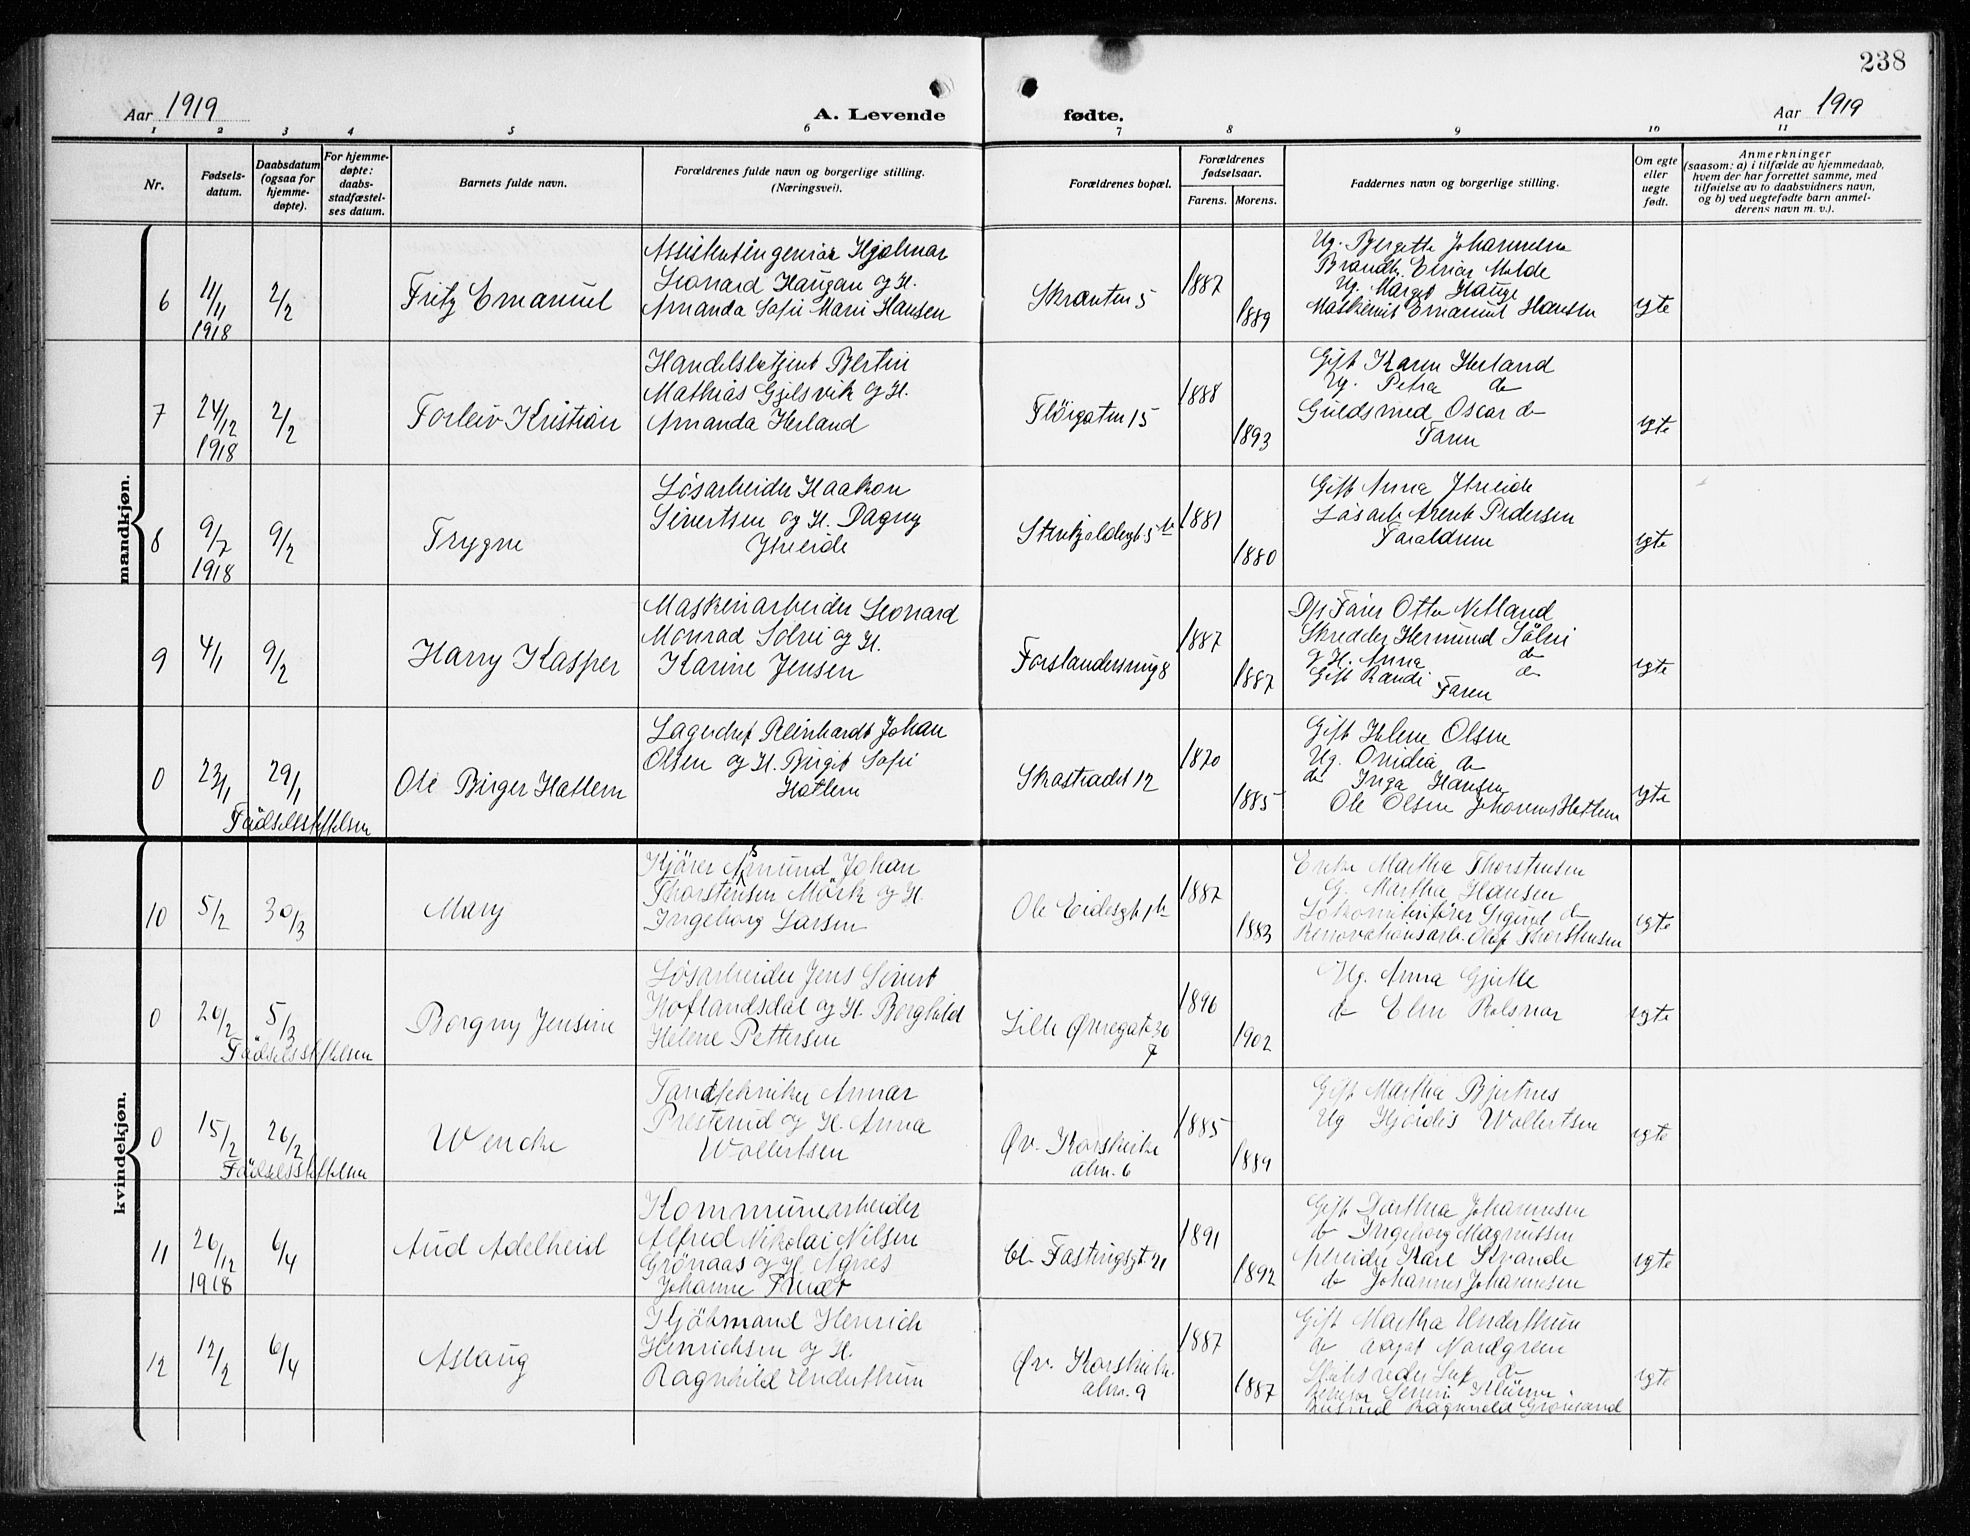 238
Aar 1919
A. Levende fødte.
Aar 1919
1 2 3 4 5 6 7 8 9 10 11
Nr.
Fødsels-
datum.
Daabsdatum
(ogsaa for
hjemme-
døpte).
For hjemme-
døpte:
daabs-
stadfæstel-
ses datum.
Barnets fulde navn.
Forældrenes fulde navn og borgerlige stilling.
(Næringsvei).
Forældrenes bopæl.
Forældrenes
fødselsaar.
Farens. Morens.
Faddernes navn og borgerlige stilling.
Om egte
eller
uegte
født.
Anmerkninger
(saasom: a) i tilfælde av hjemmedaab,
hvem der har forrettet samme, med
tilføielse av to daabsvidners navn,
og b) ved uegtefødte barn anmel-
derens navn m. v.).
mandkjøn.
6
11/11
1918
2/2
Fritz Emanuel
Assistentingeniør Hjalmar
Leonard Haugan og H.
Amanda Sofie Marie Hansen
Skranten 5
1887
1889
Ug. Bergitte Johannesen
Brandk. Einar Molde
Ug. Margit Hauge
Maskinist Emanuel Hansen
egte
7
24/12
1918
2/2
Torleiv Kristian
Handelsbetjent Bertin
Mathias Gjelsvik og H.
Amanda Herland
Fløigaten 15
1888
1893
Gift Karen Herland
Ug. Petra do
Guldsmed Oscar do
Faren
egte
8
9/7
1918
9/2
Trygve
Løsarbeider Haakon
Sivertsen og H. Dagny
Ytreeide
1881
1880
Gift Anna Ytreeide
Løsarb. Arent Pedersen
Forældrene
egte
9
4/1
9/2
Harry Kasper
Maskinarbeider Leonard
Monrad Solvi og H.
Karine Jensen
Forstandersmug 8
1887
1887
Otto Netland
Skrædder Hermund Sölvi
og H. Anna do
Gift Randi do
Faren
egte
0
23/1
29/1
Fødselsstiftelsen
Ole Birger Hatlem
Lagerchef Reinhardt Johan
Olsen og H. Birgit Sofie
Hatlem
Skostrædet 12
1870
1885
Gift Helene Olsen
Ug. Ovidia do
do Inga Hansen
Ole Olsen Johannes Hatlem
egte
kvindekjøn.
10
5/2
30/3
Mary
Kjører Asmund Johan
Thorstensen Mörk og H.
Ingeborg Larsen
1887
1883
Enke Martha Thorstensen
G. Martha Hansen
Lokomotivfører Sigurd do
Renovationsarb. Olaf Thorstensen
egte
0
20/2
5/3
Fødselsstiftelsen
Borgny Jensine
Løsarbeider Jens Sivert
Hoflandsdal og H. Borghild
Helene Pettersen
Lille Øvregate 30
7
1896
1902
Ug. Anna
do Elen
egte
0
15/2
26/2
Fødselsstiftelsen
Wencke
Tandtekniker Annar
Presterud og H. Anna
Wollertsen
Øv. Korskirke
alm. 6
1885
1889
Gift Martha Bjertnes
Ug Hjördis Wollertsen
egte
11
26/12
1918
6/4
Aud Adelheid
Kommunearbeider
Alfred Nikolai Nilsen
Grönaas og H. Agnes
Johanne
Cl. Fastingsgt. 21
1891
1892
Gift Dorthea Johannesen
do Ingeborg Magnussen
Arbeider Kare Strande
do Johannes Johannesen
egte
12
12/2
6/4
Aslaug
Kjöbmand Henrich
Henrichsen og H.
Ragnhild Underthun
Øv. Korskirke
alm. 9
1887
1887
Gift Martha Underthun
do Aagot Nordgreen
egte